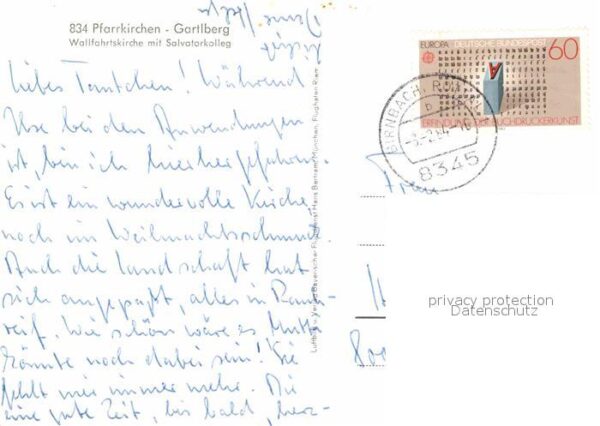 834 Pfarrkirchen - Gartlberg
Wallfahrtskirche mit Salvatorkolleg
Liebes Tantchen! Während
Ilse bei den Anwendungen
ist, bin ich hierher gefahren.
Es ist ein wundervolle Kirche
noch im Weihnachtsschmuck.
Auch die Landschaft hat
sich angepaßt, alles in Rauh-
reif. Wie schön wäre es, Mutti
könnte noch dabei sein! Sie
fehlt mir immer mehr. Dir
eine gute Zeit, bis bald, herz-
EUROPA DEUTSCHE BUNDESPOST
60
ERFINDUNG DER BUCHDRUCKERKUNST
BIRNBACH, ROTTAL
b
8345
Frau
privacy protection
Datenschutz